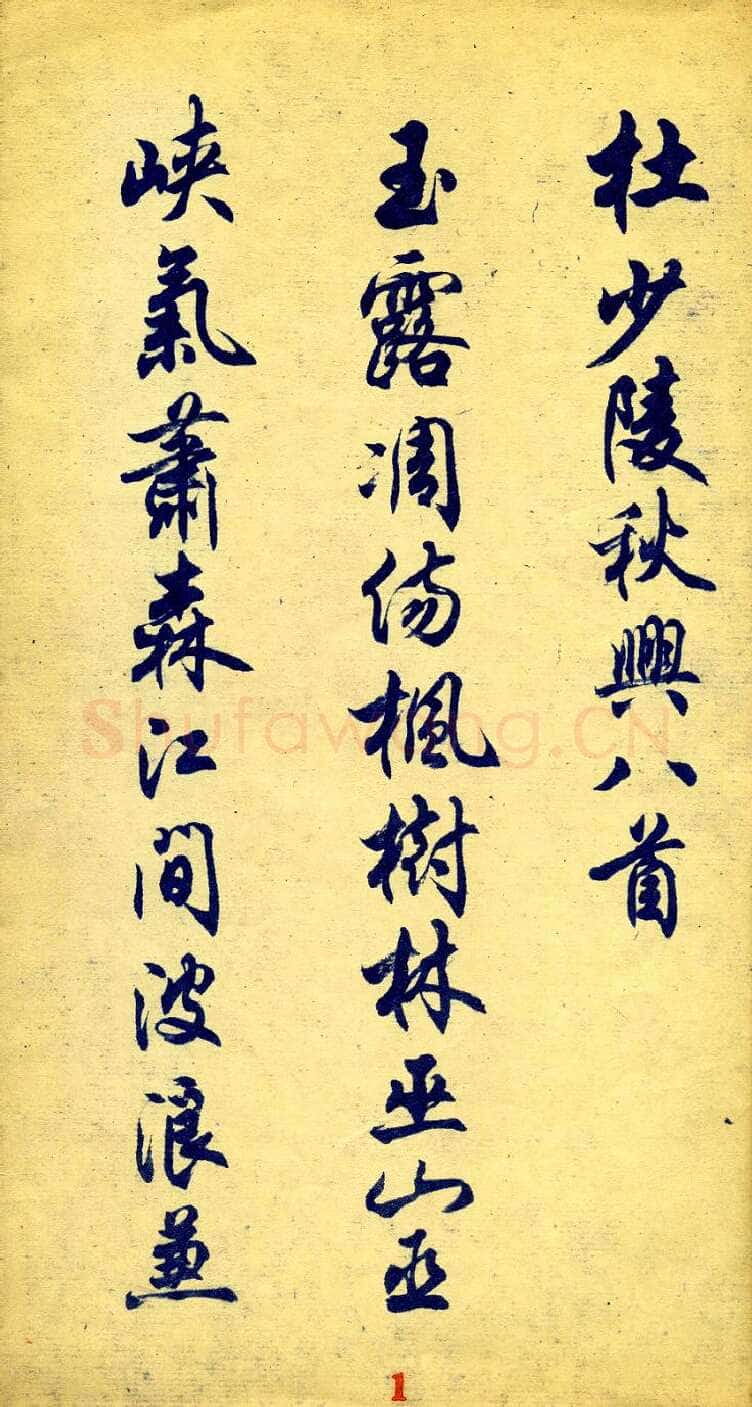 杜少陵秋興八首
玉露凋傷楓樹林巫山巫
峽氣蕭森江間波浪兼
Shufawang.CN
1